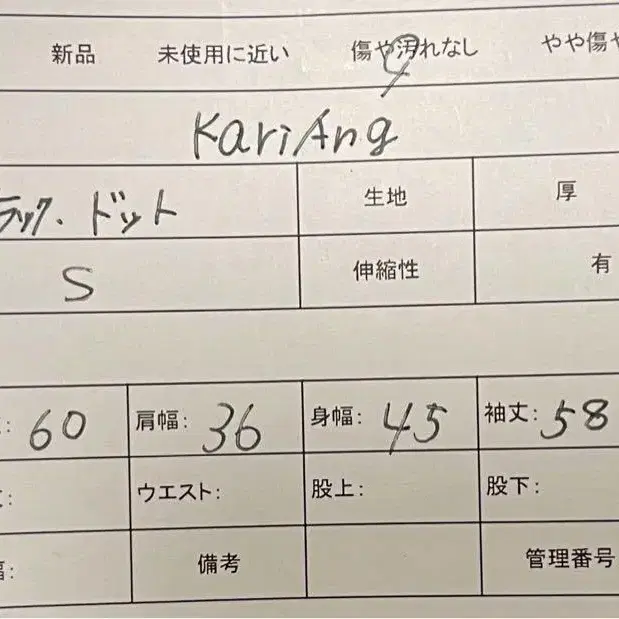 新品 未使用に近い 傷や汚れなし やや傷や
KariAng
ラック・ドット 生地 厚
S 伸縮性 有
: 60 肩幅: 36 身幅: 45 袖丈: 58
: ウエスト: 股上: 股下:
幅: 備考 管理番号